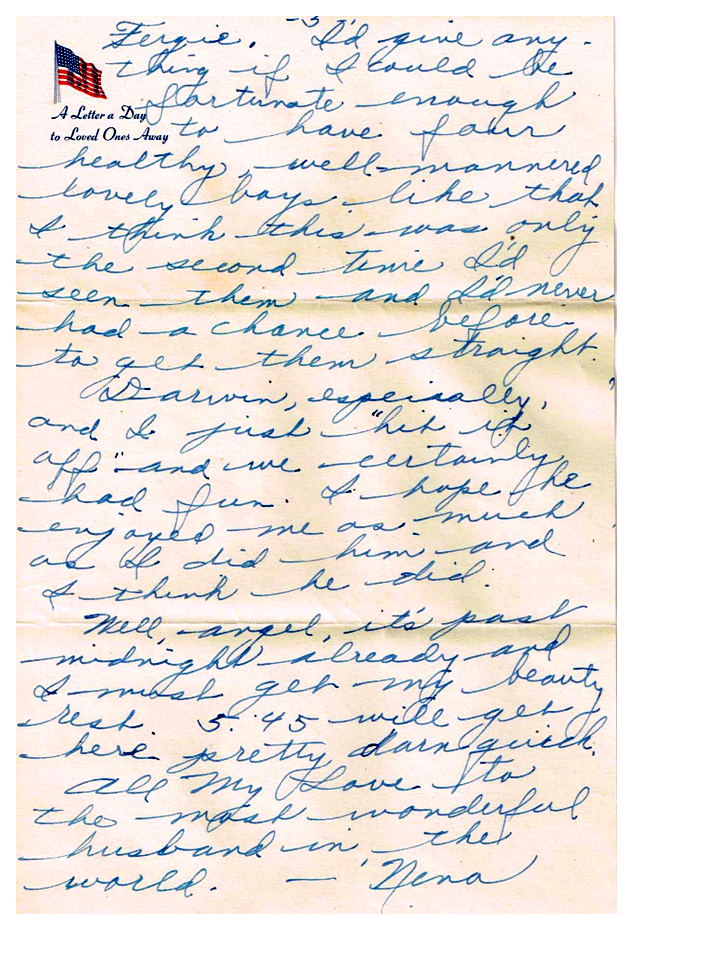 -5-
Fergie. I'd give any-
thing if I could be
fortunate enough
A Letter a Day
to Loved Ones Away
to have four
healthy, well-mannered
lovely boys like that.
I think this was only
the second time I'd
seen them and I'd never
had a chance before
to get them straight.
Darwin, especially,
and I just "hit it
off" and we certainly
had fun. I hope he
enjoyed me as much
as I did him and
I think he did.
Well, angel, it's past
midnight already and
I must get my beauty
rest. 5:45 will get
here pretty darn quick.
All My Love to
the most wonderful
husband in the
world. — Nena